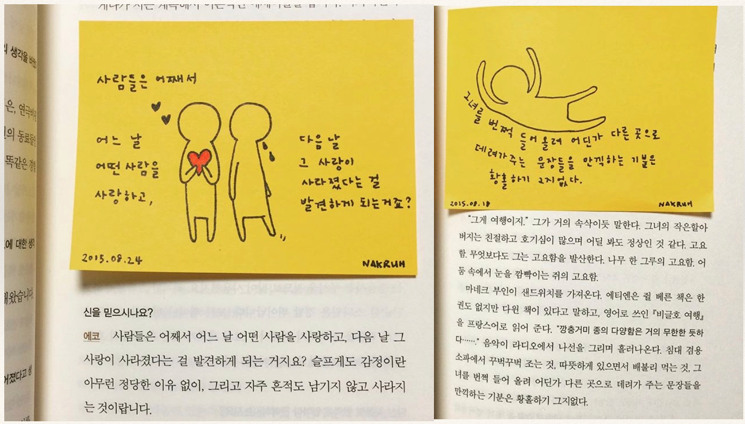 사람들은 어째서
어느 날
어떤 사람을
사랑하고,
다음 날
그 사랑이
사라졌다는 걸
발견하게 되는거죠?
2015.08.24
NAKRUH
신을 믿으시나요?
에코 사람들은 어째서 어느 날 어떤 사람을 사랑하고, 다음 날 그
사랑이 사라졌다는 걸 발견하게 되는 거지요? 슬프게도 감정이란
아무런 정당한 이유 없이, 그리고 자주 흔적도 남기지 않고 사라지
는 것이랍니다.
그녀를 번쩍 들어 올려 어딘가 다른 곳으로
데려가주는 문장들을 만끽하는 기분은
황홀하기 그지없다.
2015.08.18
NAKRUH
“그게 여행이지.” 그가 거의 속삭이듯 말한다. 그녀의 작은할아
버지는 친절하고 호기심이 많으며 어딜 봐도 정상인 것 같다. 고요
함. 무엇보다도 그는 고요함을 발산한다. 나무 한 그루의 고요함. 어
둠 속에서 눈을 깜빡이는 쥐의 고요함.
마네크 부인이 샌드위치를 가져온다. 에티엔은 쥘 베른 책은 한
권도 없지만 다윈 책이 있다고 말하고, 영어로 쓰인 『비글호 여행』
을 프랑스어로 읽어 준다. “깡충거미 종의 다양함은 거의 무한한 듯하
다…….” 음악이 라디오에서 나선을 그리며 흘러나온다. 침대 겸용
소파에서 꾸벅꾸벅 조는 것, 따뜻하게 있으면서 배불리 먹는 것, 그
녀를 번쩍 들어 올려 어딘가 다른 곳으로 데려가 주는 문장들을
만끽하는 기분은 황홀하기 그지없다.